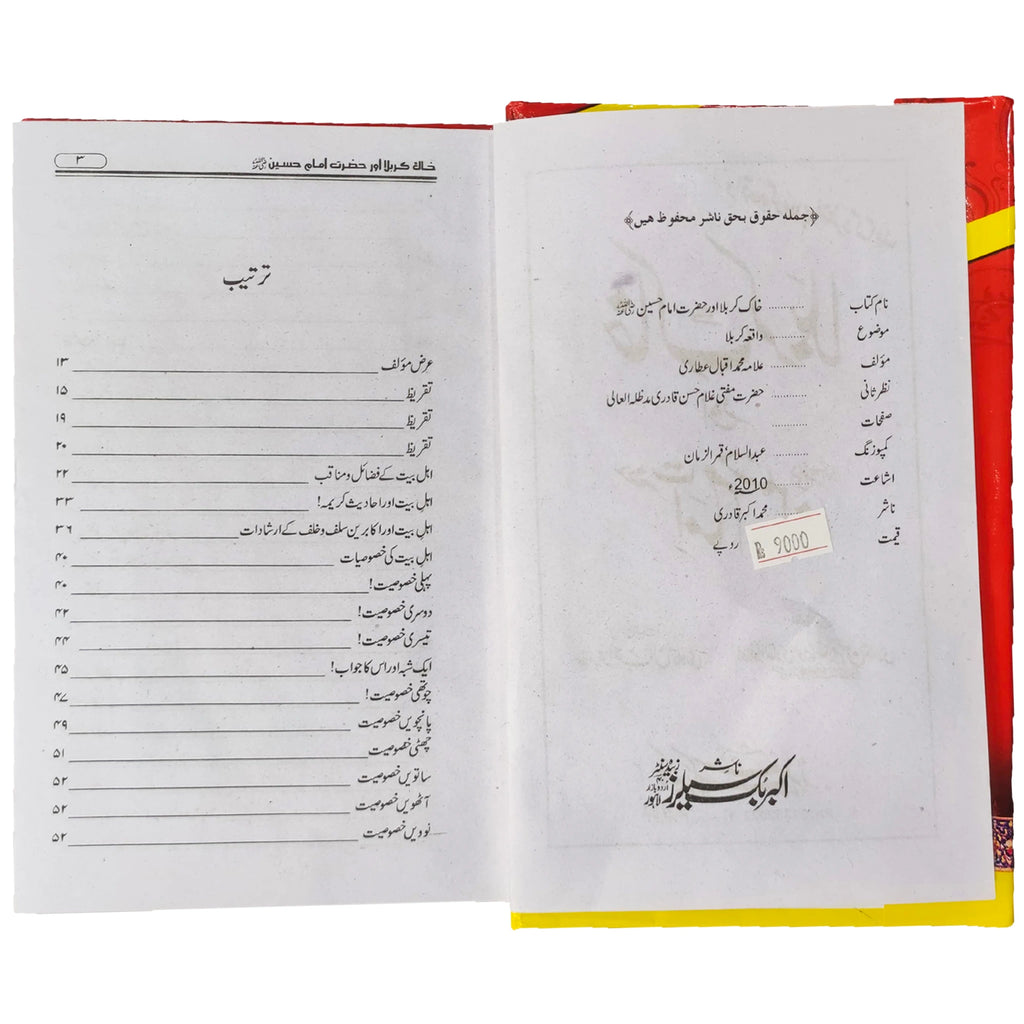 ﴿جمله حقوق بحق ناشر محفوظ هیں﴾
نام کتاب ............ خاک کربلا اور حضرت امام حسین رضی اللہ عنہ
موضوع ............ واقعہ کربلا
مؤلف ............ علامہ محمد اقبال عطاری
نظر ثانی ............ حضرت مفتی غلام حسن قادری مدظلہ العالی
صفحات ............
کمپوزنگ ............ عبدالسلام، قمر الزمان
اشاعت ............ 2010ء
ناشر ............ محمد اکبر قادری
قیمت ............ روپے
₨ 9000
ناشر
اکبر بک سیلرز
زبیدہ سنٹر ۴۰
اردو بازار
لاہور
خاک کربلا اور حضرت امام حسین رضی اللہ عنہ ۳
ترتیب
عرض مؤلف ۱۳
تقریظ ۱۵
تقریظ ۱۹
تقریظ ۲۰
اہل بیت کے فضائل و مناقب ۲۲
اہلِ بیت اور احادیث کریمہ! ۳۳
اہلِ بیت اور اکابرین سلف و خلف کے ارشادات ۳۶
اہلِ بیت کی خصوصیات ۴۰
پہلی خصوصیت! ۴۰
دوسری خصوصیت! ۴۲
تیسری خصوصیت! ۴۴
ایک شبہ اور اس کا جواب! ۴۵
چوتھی خصوصیت! ۴۷
پانچویں خصوصیت ۴۹
چھٹی خصوصیت ۵۱
ساتویں خصوصیت ۵۲
آٹھویں خصوصیت ۵۲
نوویں خصوصیت ۵۲